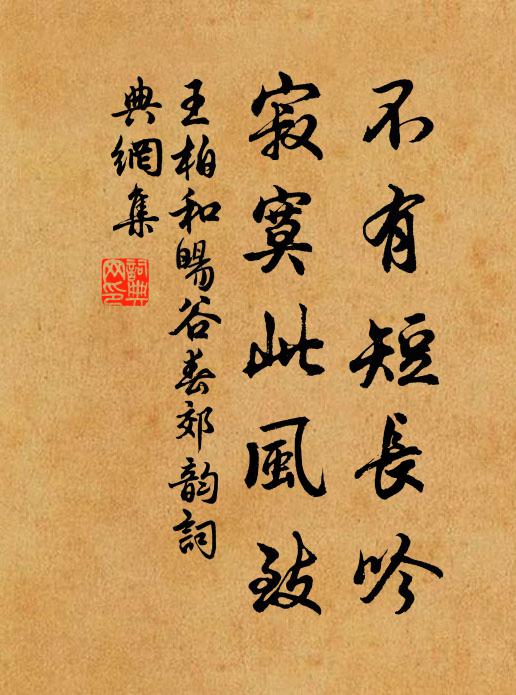 不有短長吟
寂寞此風致
王柏和暘谷春郊韵詞
典網集
詞典网印